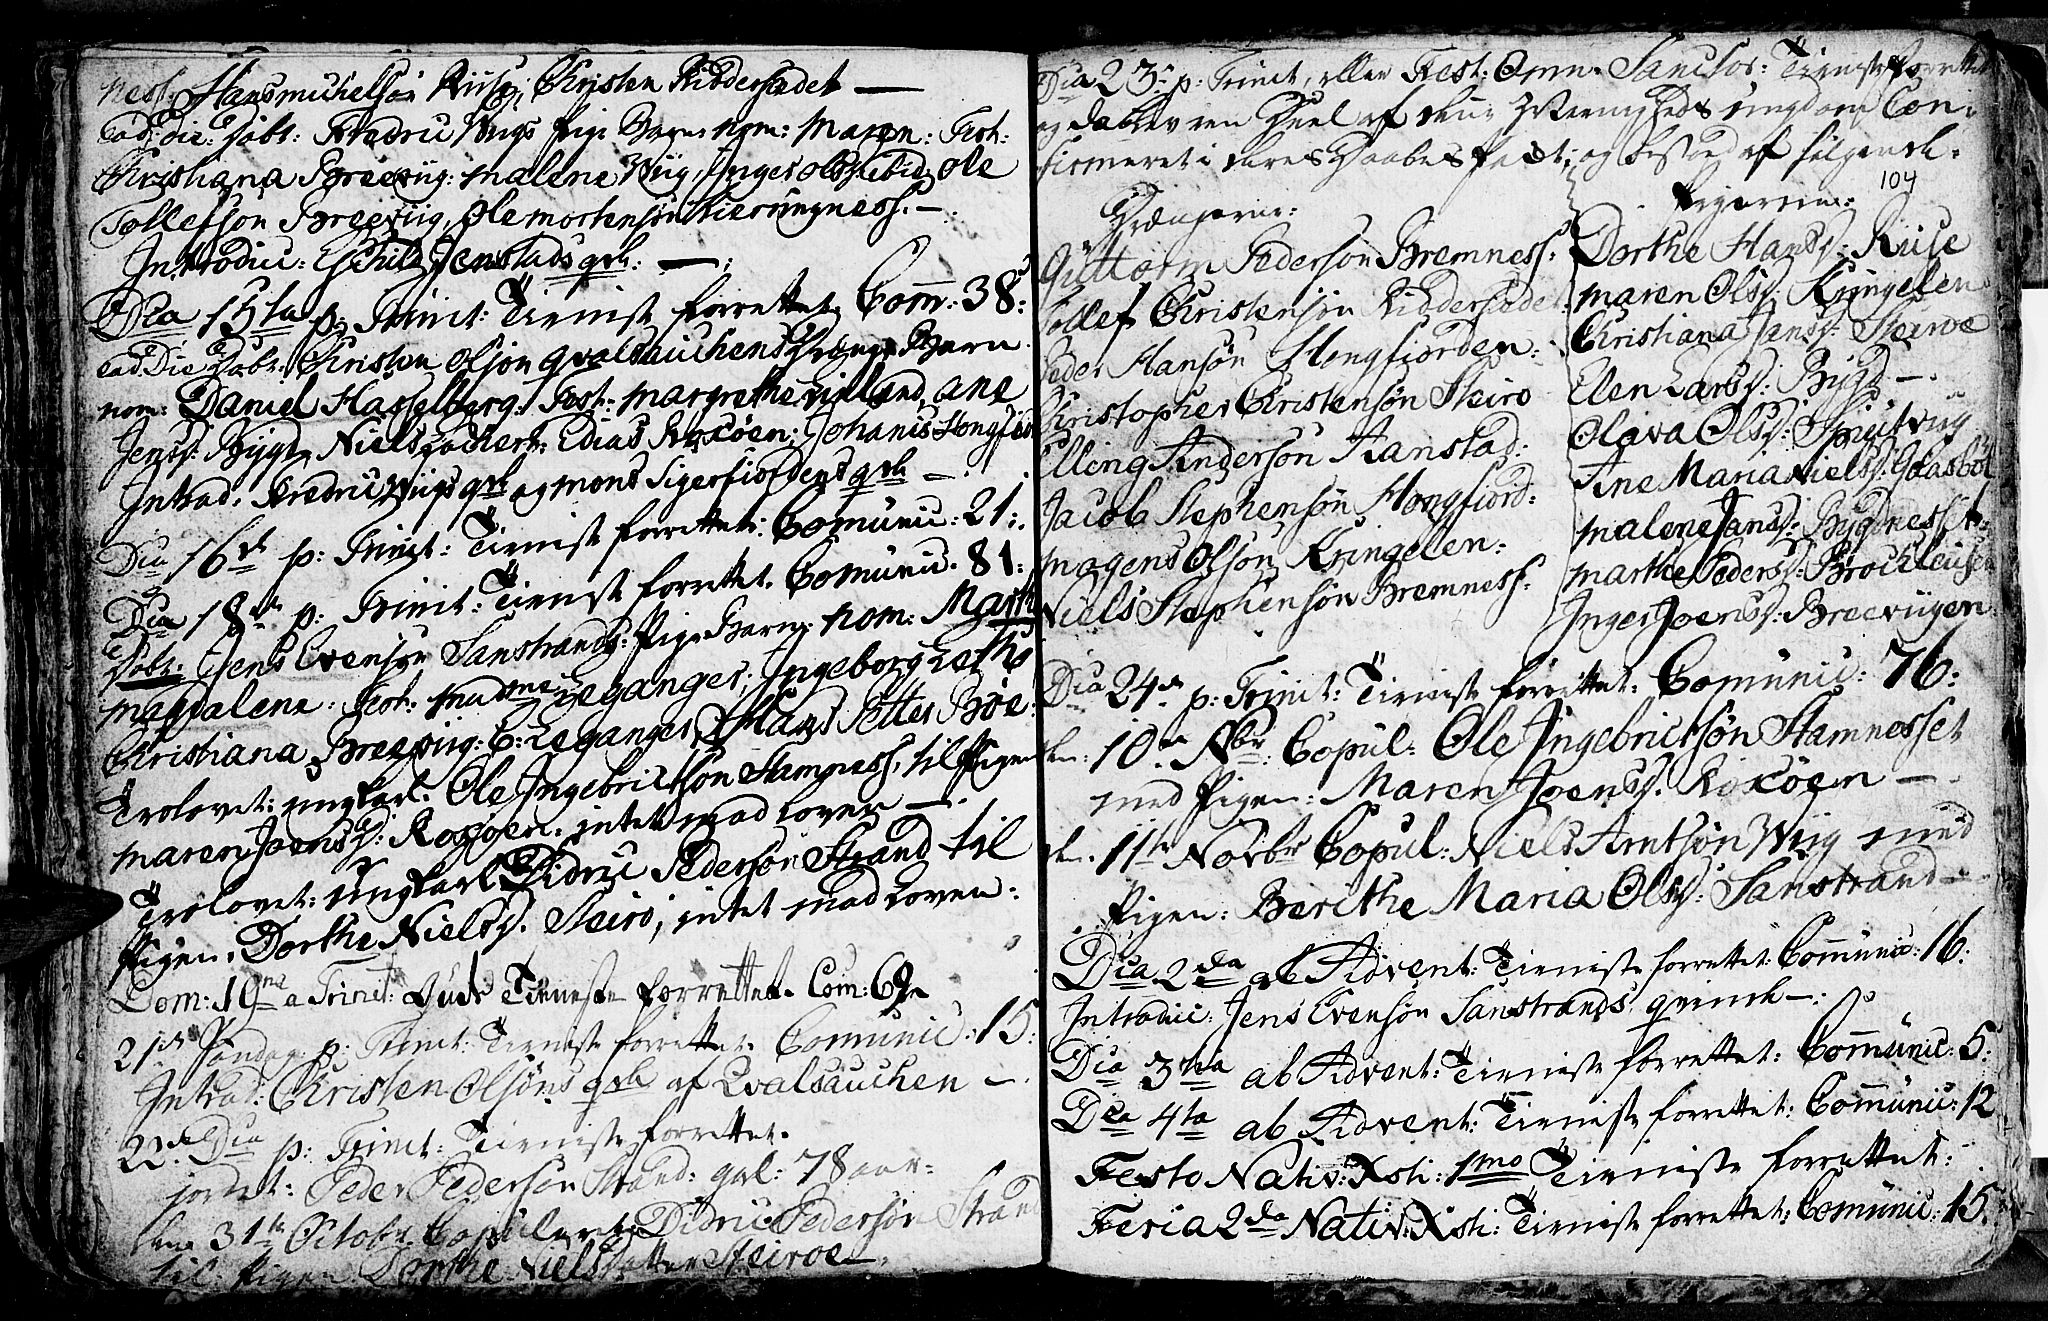 ness. Hans Michelsøn Ruise, Christen Kidderædet —
Eod: Die: Døbt: Fredric Wiigs Pige Barn: nom: Maren: Test:
Christiana Breeviig: Malene Wiig, Inger Olsd: ibid: Ole
Tollefsøn Breeviig, Ole Mortensøn Kierringness. —
Introduc: Eschild Jenstads qvl: — :
Dca 15ta p: Trinit: Tienist forrettet, Com̄: 38:
Eod. Die Døbt: Christen Olsøn qvalsauchens Drenge Barn
nom: Daniel Hasselberg: Test: Margrethe, Ane
Jensd: Bygd, Niels Zachert: Edias Roxøen: Johanis Hongfiord
Introd: Fredric Wiigs qvl og Mons Sigerfiordens qvl — .
Dca 16de p: Trinit: Tienist forrettet: Com̄unic: 21:
Dca 18de p: Trinit: Tienist forrettet. Com̄unic. 81:
Døbt: Jens Evensøn Sanstrands: Pige Barn: nom: Marth
Magdalena. Test: Madme Leganger; Ingeborg
Christiana Breeviig: C: Leganger, Hans Petter Bøe:
Trolovet: ungkarl: Ole Ingebrictsøn Stamness, til Pigen
Maren Joensd: Roxøen. intet mod Loven —.
Trolovet: ungkarl Didric Pedersøn Strand til
Pigen. Dorthe Nielsd. Steiro, intet mod Loven:
Dom: 19ne a Trinit: Guds Tieneste forrettet. Com: 69.
21de Søndag p: Trinit: Tienist forrettet. Com̄unic: 15:
Introd: Christen Olsøns qvl af Qvalsauchen — .
22de Dca p: Trinit: Tieniste forrettet.
jordet: Peder Pedersøn Strand: gml: 78 aar:
den 31te Octobr Copuleret Didric Pedersøn Strand
til Pigen Dorthe Niels Datter Steiroe — .
Dca 23de p: Trinit, eller Fest: Omn. Sanctor: Tieniste forrettet
og da blev en Deel af Ungdom Con-
firmeret i deres Daabes Pagt; og bestoed af følgende.
104
Drengerne:
Pigerne:
Guttorm Pedersøn Bremness:
Tollef Christensøn Kidderædet
Peder Hansøn Hongfiorden:
Christopher Christensøn Steiro
Elling Andersøn Aanstad:
Jacob Stephensøn Hongfiord:
Mogens Olsøn Kringelen:
Niels Stephensøn Bremness:
Dorthe Hansd: Ruise
Maren Olsd: Kringelen
Christiana Jensd: Steiroe
Elen Larsd: Bygd — .
Olava Olsd:
Ane Maria Nielsd: Gaasbøl
Malene Jansd: Bygdness
Marthe Pedersd:
Inger Joensd: Breeviigen
Dca 24de p: Trinit: Tieniste forrettet: Com̄unic: 76:
den: 10de Nbr: Copul: Ole Ingebrictsøn Stamnesset
med Pigen: Maren Joensd: Roxøen — .
den. 11te Novbr Copul: Niels Arntsøn Wiig med
Pigen: Berithe Maria Olsd: Sanstrand —
Dca 2da ab Advent: Tieniste forrettet: Com̄unic: 16:
Introduc: Jens Evensøn Sanstrands qvinde — :
Dca 3tia ab Advent: Tieniste forrettet: Com̄unic: 5:
Dca 4ta ab Advent: Tieniste forrettet: Com̄unic: 12
Festo Nativ: Xsti: 1mo Tieniste forrettet:
Feria 2da Nativ: Xsti: Tieniste forrettet: Com̄unic: 15.